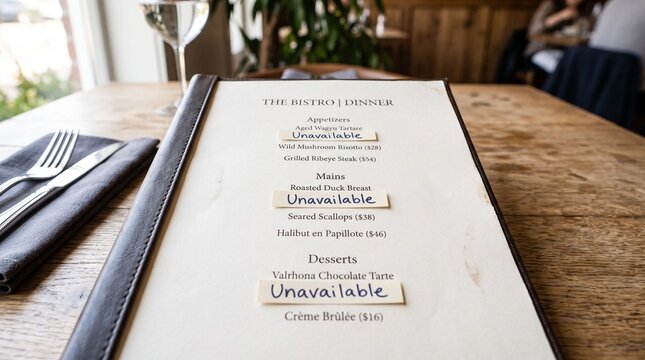 THE BISTRO | DINNER
Appetizers
Aged Wagyu Tartare
Unavailable
Wild Mushroom Risotto ($28)
Grilled Ribeye Steak ($54)
Mains
Roasted Duck Breast
Unavailable
Seared Scallops ($38)
Halibut en Papillote ($46)
Desserts
Valrhona Chocolate Tarte
Unavailable
Crème Brûlée ($16)